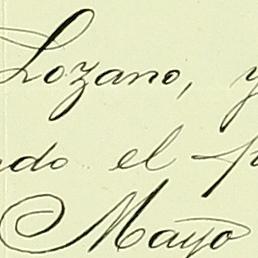 Lozano, y
ndo el p
Mayo